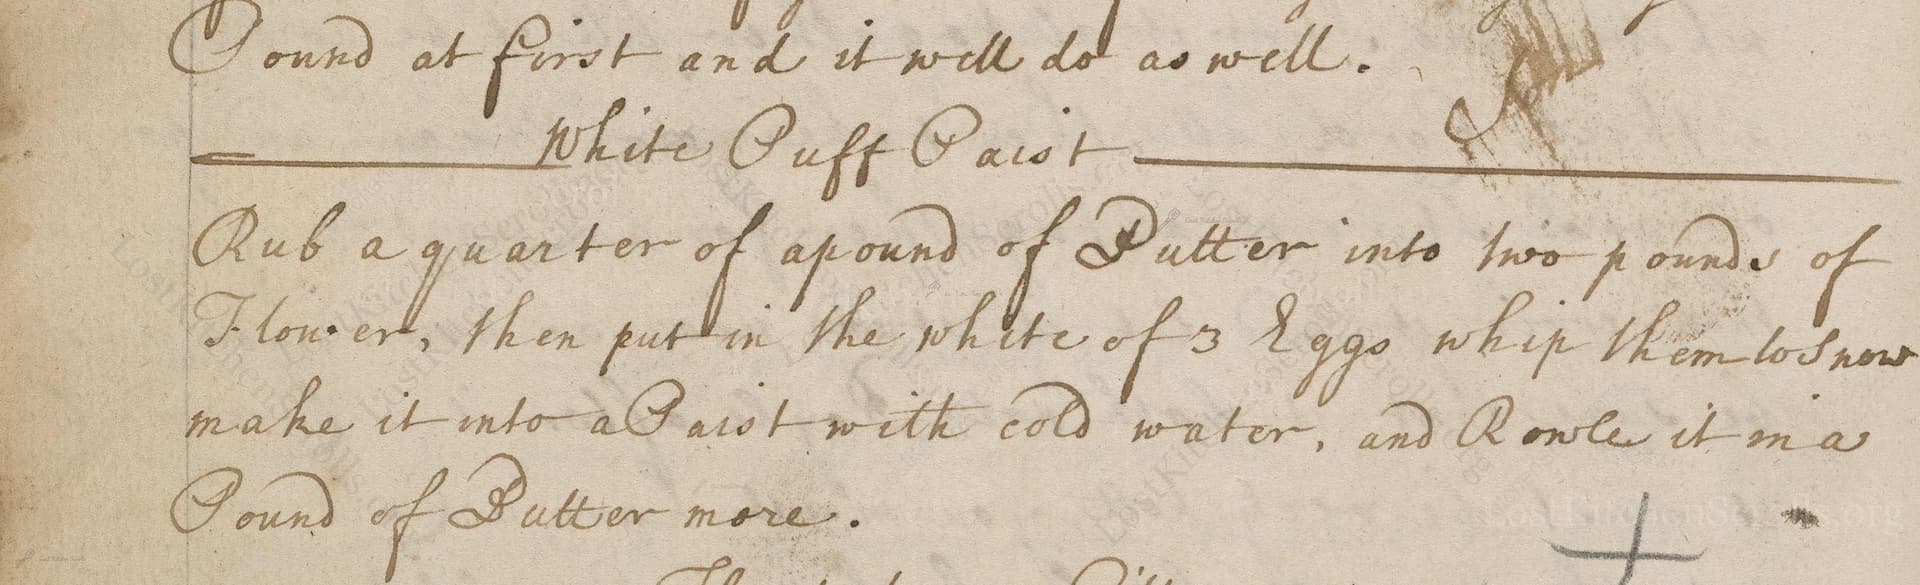 Pound at first and it well do as well.
White Puff Paist
Rub a quarter of a pound of Butter into two pounds of
Flower, then put in the white of 3 Eggs whip them to Snow
make it into a Paist with cold water, and Rowle it in a
Pound of Butter more.
LostKitchenScrolls.org